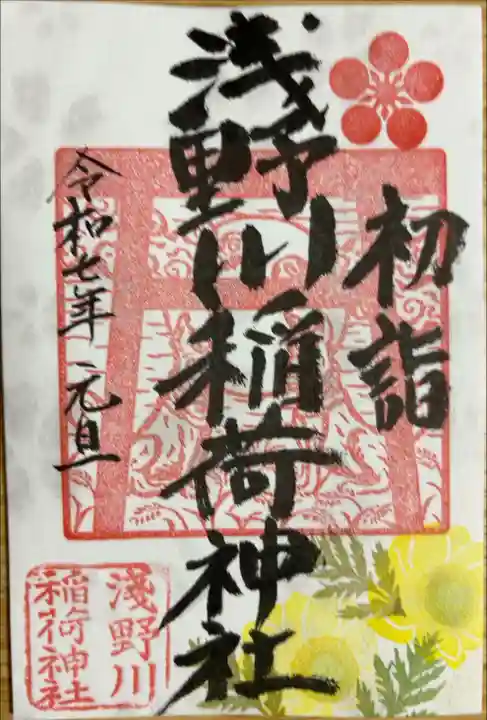 初詣
浅野川稲荷神社
令和七年 元旦
淺野川
稲荷神社